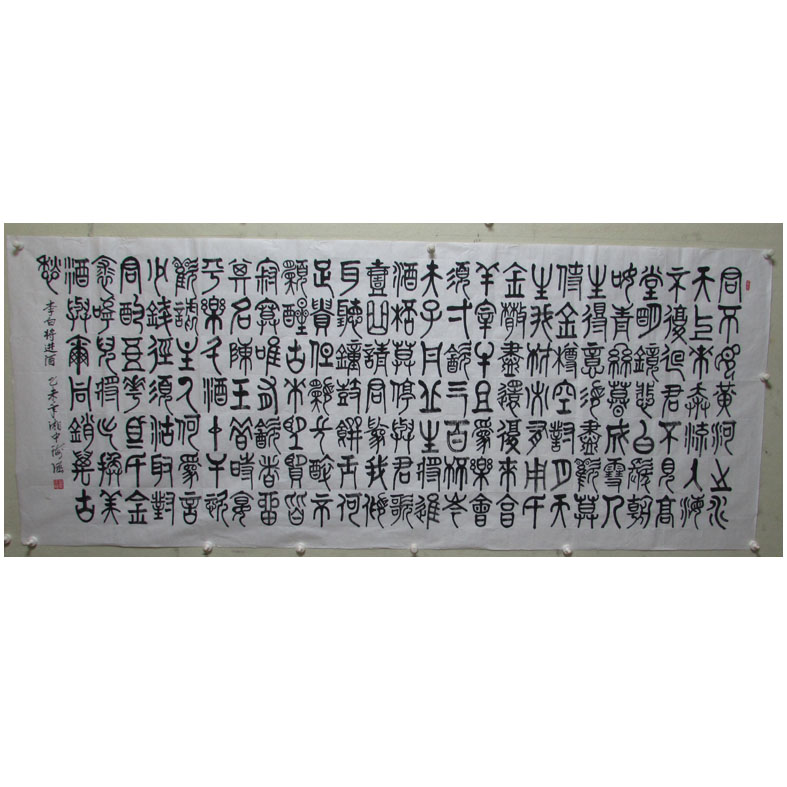 君不見黃河之水
天上來奔流入海
不復迴君不見高
堂明鏡悲白髮朝
如青絲暮成雪人
生得意須盡歡莫
使金樽空對月天
生我材必有用千
金散盡還復來烹
羊宰牛且爲樂會
須一飲三百杯岑
夫子丹丘生將進
酒杯莫停與君歌
壹曲請君爲我傾
耳聽鐘鼓饌玉何
足貴但願長醉不
願醒古來聖賢皆
寂寞唯有飲者留
其名陳王昔時宴
平樂斗酒十千恣
歡謔主人何爲言
少錢徑須沽取對
君酌五花馬千金
裘呼兒將出換美
酒與爾同銷萬古
愁
李白將進酒 乙未